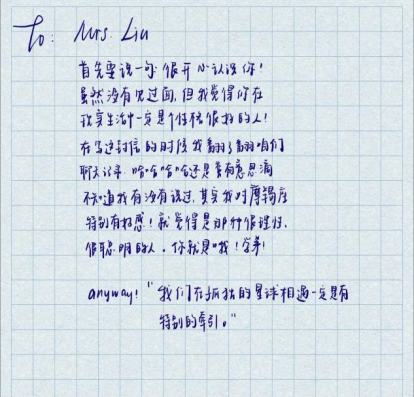 To: Mrs. Liu
首先要说一句 很开心认识你!
虽然没有见过面,但我觉得你在
现实生活中一定是个性格很好的人!
在写这封信的时候我翻了翻咱们
聊天记录 哈哈哈哈还是蛮有意思滴
不知道我有没有说过,其实我对摩羯座
特别有好感!就觉得是那种很理性、
很聪明的人。你就是哦!
anyway! "我们在孤独的星球相遇一定是有
特别的牵引。"